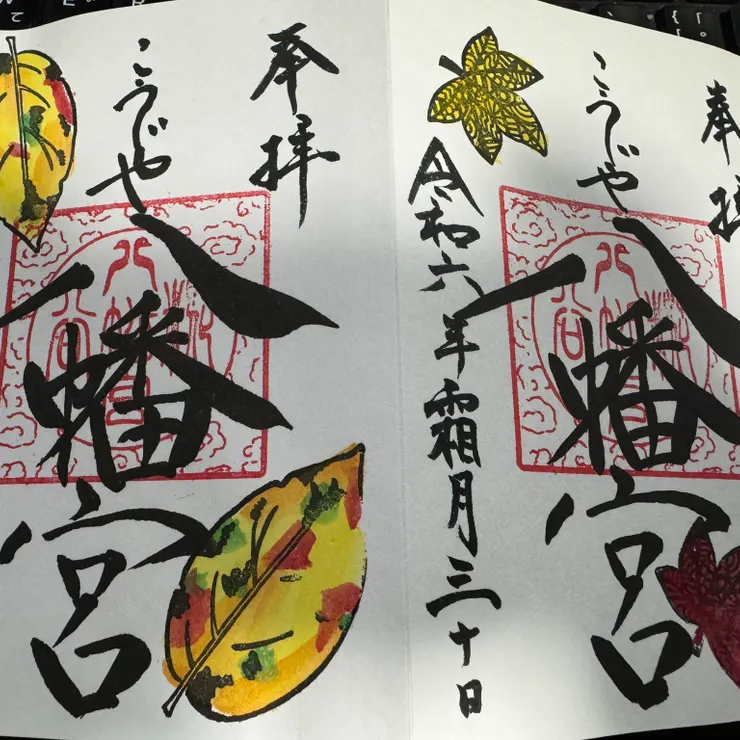 奉拝
こうじや
八幡宮
令和六年霜月三十日
奉拝
こうじや
八幡宮